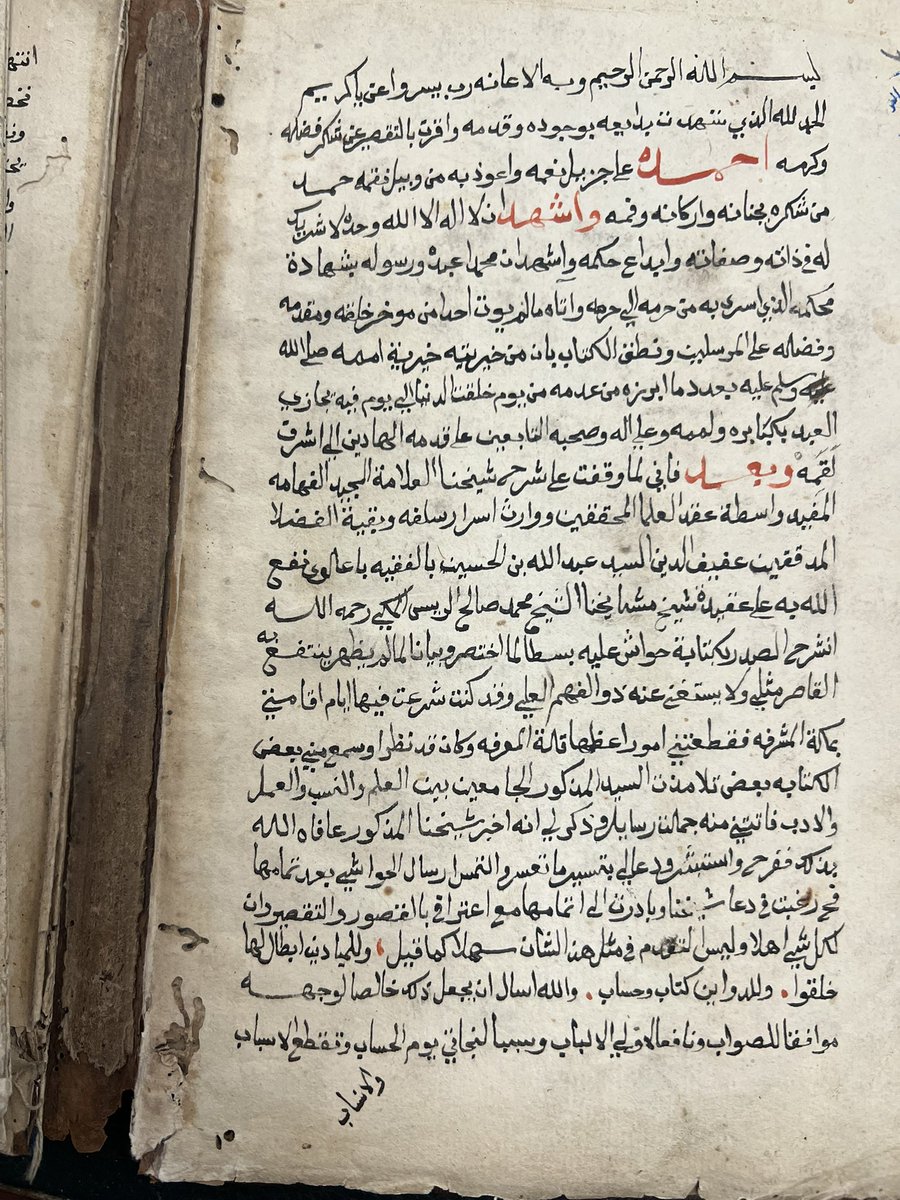 بسم الله الرحمن الرحيم وبه الاعانه رب يسر واعن ياكريم
الحمد لله الذي شهدت بدايعه بوجوده وقدمه واقرت بالتقصير عن شكر فضله
وكرمه احمده على جزيل نعمه واعوذ به من وبيل نقمه حمد
من شكره بجنانه واركانه وفمه واشهد ان لا اله الا الله وحده لا شريك
له في ذاته وصفاته وابداع حكمه واشهد ان محمدا عبده ورسوله بشهادة
محكمه الذي اسرى به من حرمه الى حرمه واتاه مالم يوت احدا من موخر خلقه ومقدمه
وفضله على المرسلين ونطق الكتاب بان من خيريته خيرية اممه صلى الله
وسلم عليه بعدد ما ابرزه من عدمه من يوم خلقت الدنيا الى يوم فيه يجازي
العبد بكبايره ولممه وعلى اله وصحبه التابعين على قدمه الهادين الى اشرف
لقمه وبعد فاني لما وقفت على شرح شيخنا العلامة المجيد الفهامه
المفيد واسطة عقد العلما المحققين ووارث اسرار سلفه وبقية الفضلا
المدققين عفيف الدين السيد عبد الله بن الحسين بالفقيه باعلوي نفع
الله به على عقيدة شيخ مشايخنا الشيخ محمد صالح الريس المكي رحمه الله
انشرح الصدر لكتابة حواش عليه بسطا لما اختصر وبيانا لما لم يظهر ينتفع به
القاصر مثلي ولا يستغني عنه ذو الفهم العلي وقد كنت شرعت فيها ايام اقامتي
بمكة المشرفه فقطعتني امور اعظمها قلة المعرفه وكان قد نظر او سمع مني بعض
الكتابه بعض تلامذت السيد المذكور الجامعين بين العلم والنسب والعمل
والادب فاتتني منه جملت رسايل وذكر لي انه اخبر شيخنا المذكور عافاه الله
بذلك ففرح واستبشر ودعا لي بتيسير ما تعسر والتمس ارسال الحواشي بعد تمامها
فحين رغبت في دعا شيخنا وبادرت الى اتمامها مع اعترافي بالقصور والتقصير وان
لكل شي اهلا وليس التقدم في مثل هذا الشان سهلا كما قيل وللميادين ابطال لها
خلقوا وللدواوين كتاب وحساب والله اسال ان يجعل ذلك خالصا لوجهه
موافقا للصواب ونافعا لاولي الالباب وسببا لنجاتي يوم الحساب وتقطع الاسباب
والانساب